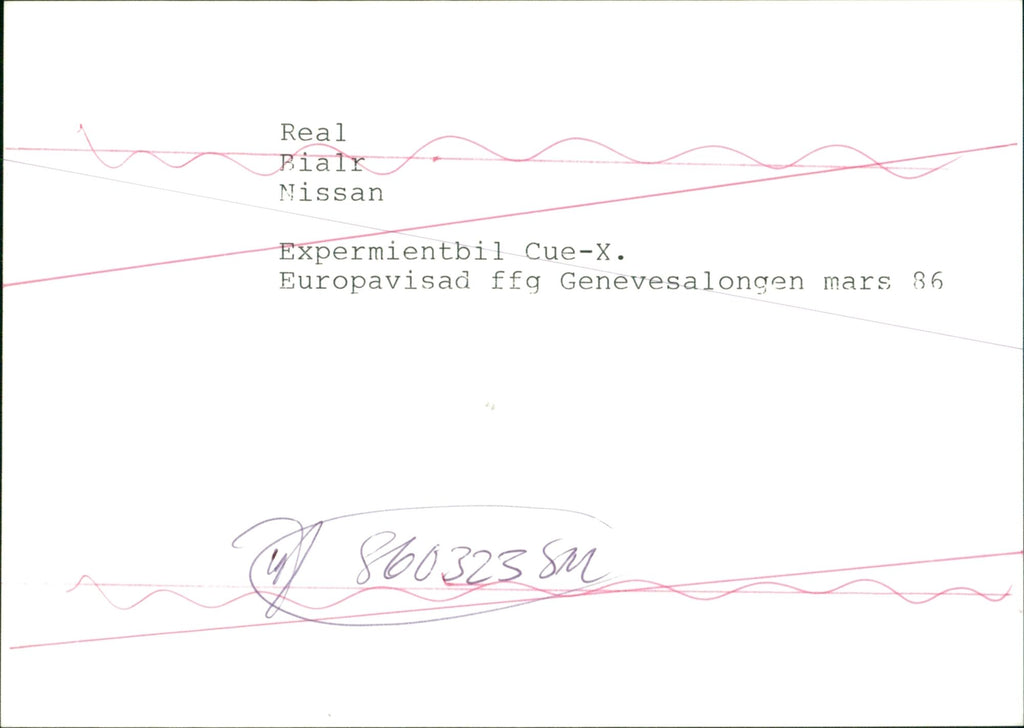 Real
Bialr
Nissan
Expermientbil Cue-X.
Europavisad ffg Genevesalongen mars 86
860323 SM